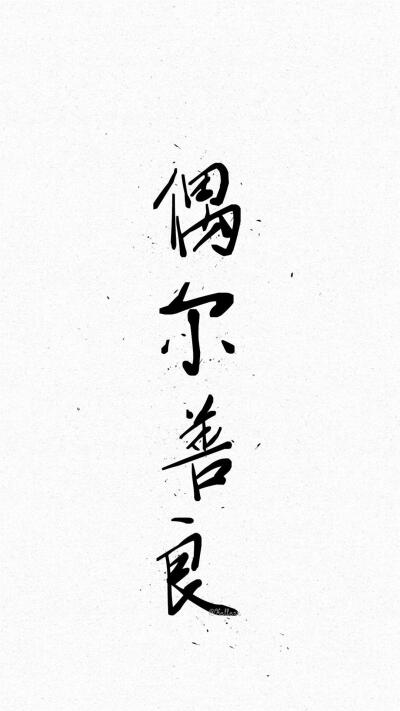 偶尔善良